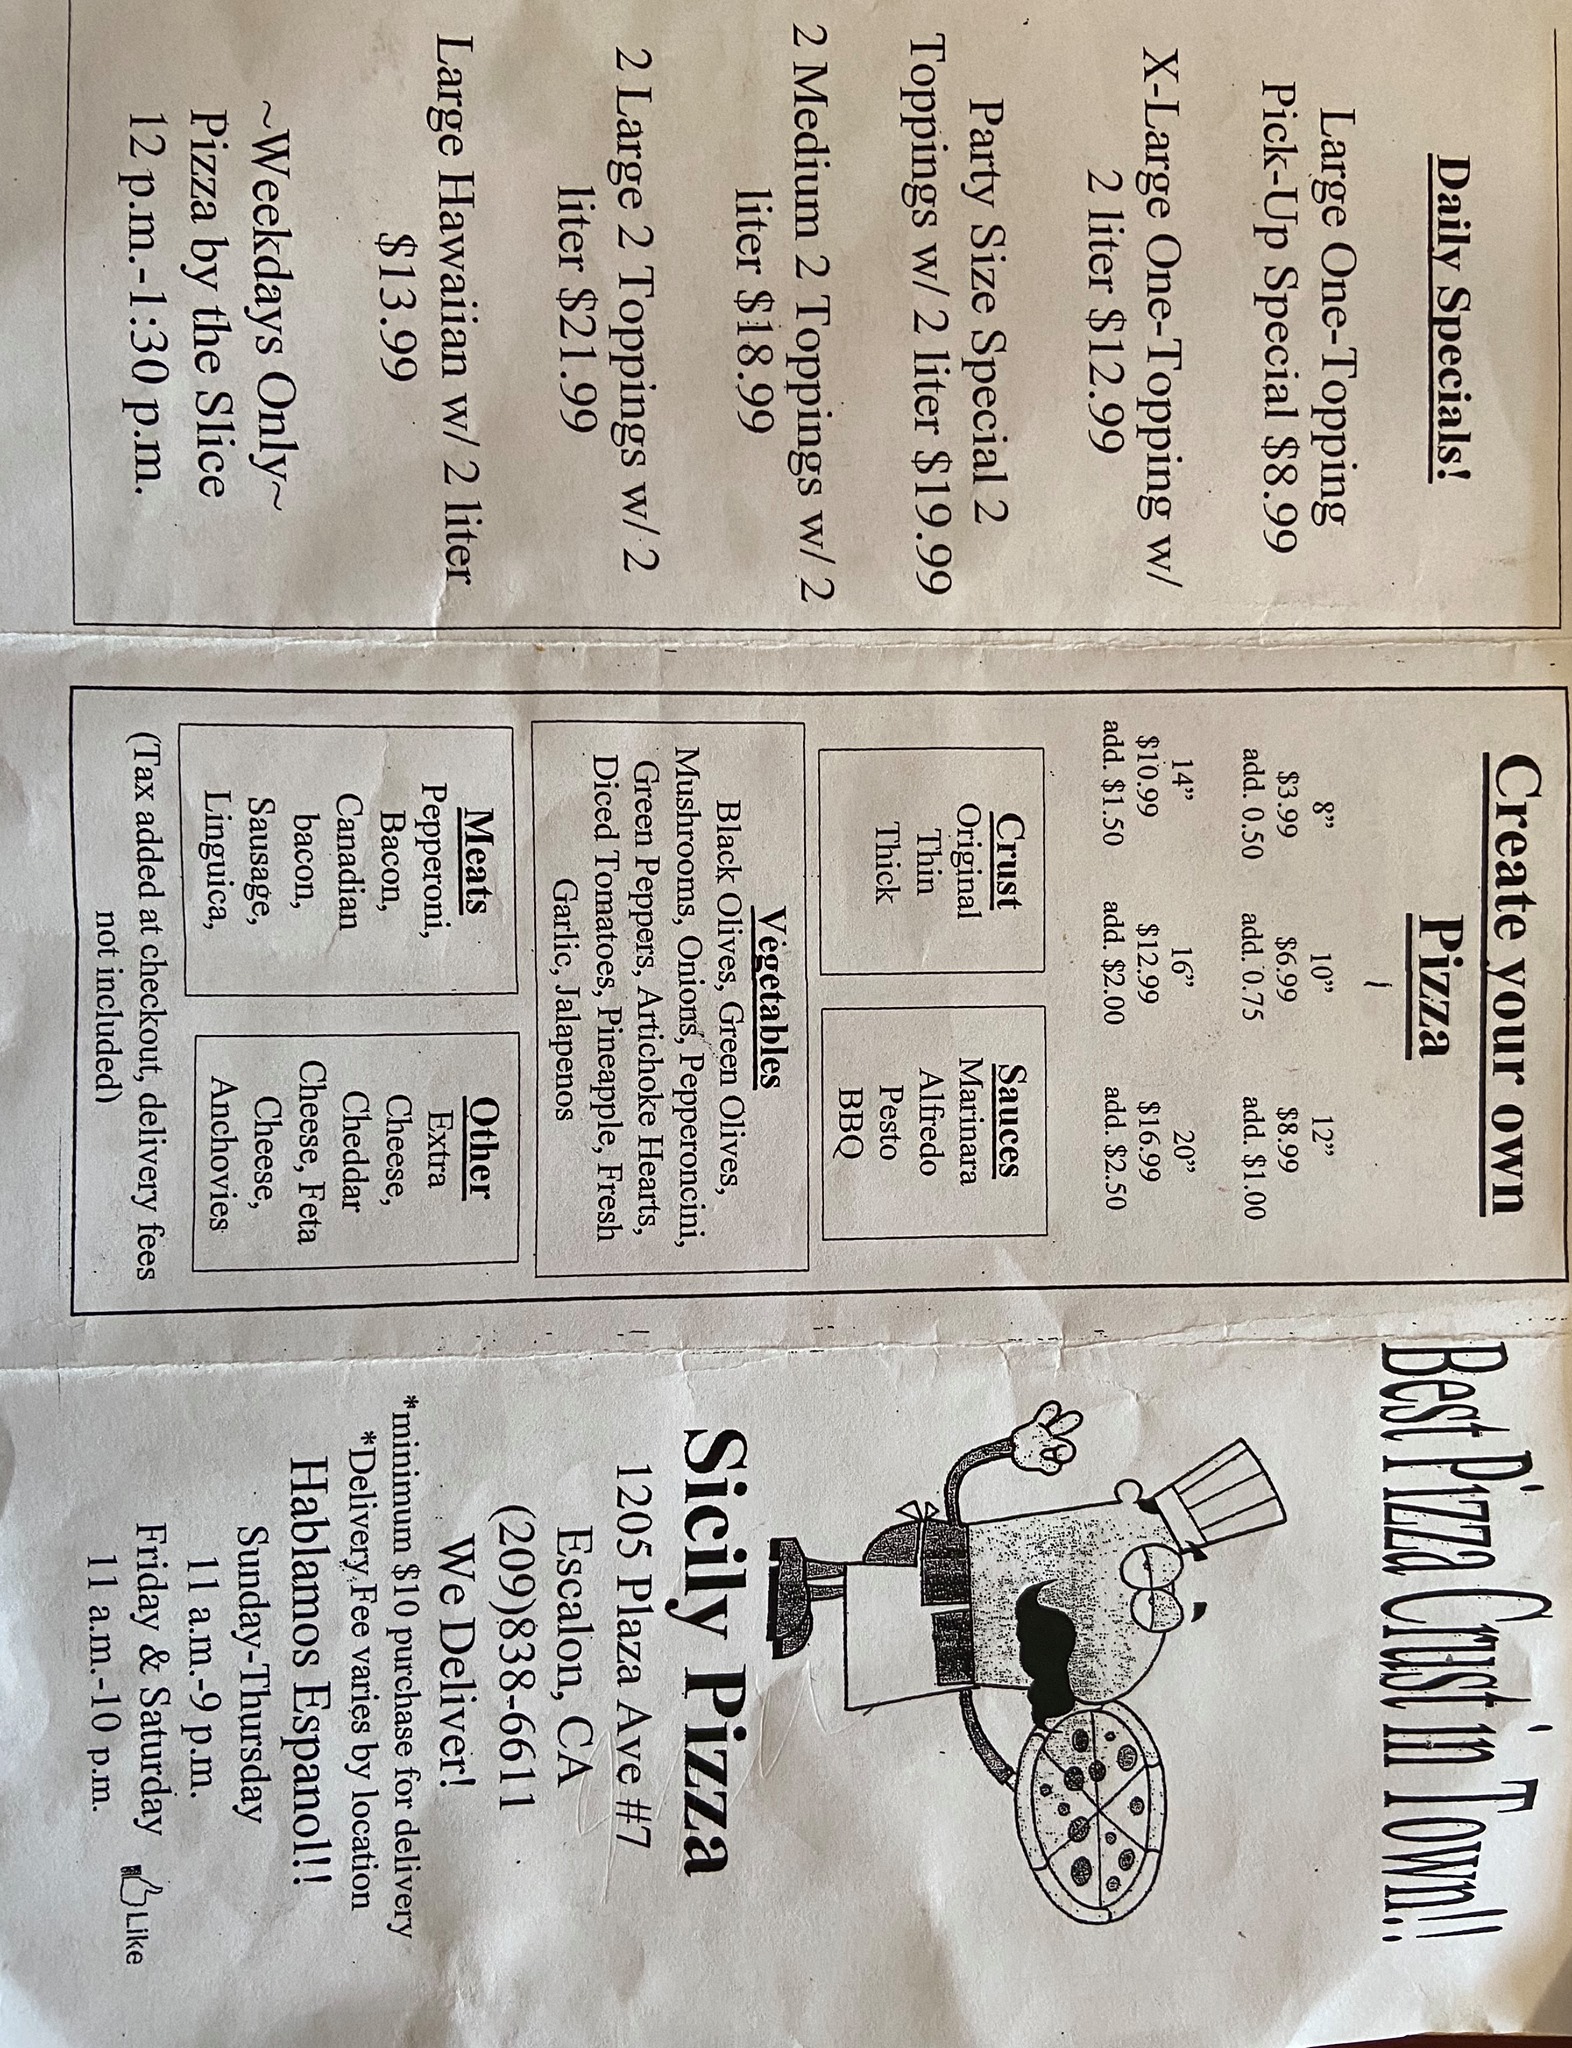 Daily Specials!
Large One-Topping
Pick-Up Special $8.99
X-Large One-Topping w/
2 liter $12.99
Party Size Special 2
Toppings w/ 2 liter $19.99
2 Medium 2 Toppings w/ 2
liter $18.99
2 Large 2 Toppings w/ 2
liter $21.99
Large Hawaiian w/ 2 liter
$13.99
~Weekdays Only~
Pizza by the Slice
12 p.m.-1:30 p.m.
Create your own
Pizza
8” 10” 12”
$3.99 $6.99 $8.99
add. 0.50 add. 0.75 add. $1.00
14” 16” 20”
$10.99 $12.99 $16.99
add. $1.50 add. $2.00 add. $2.50
Crust
Original
Thin
Thick
Sauces
Marinara
Alfredo
Pesto
BBQ
Vegetables
Black Olives, Green Olives,
Mushrooms, Onions, Pepperoncini,
Green Peppers, Artichoke Hearts,
Diced Tomatoes, Pineapple, Fresh
Garlic, Jalapenos
Meats
Pepperoni,
Bacon,
Canadian
bacon,
Sausage,
Linguica,
Other
Extra
Cheese,
Cheddar
Cheese, Feta
Cheese,
Anchovies
(Tax added at checkout, delivery fees
not included)
Best Pizza Crust in Town!!
Sicily Pizza
1205 Plaza Ave #7
Escalon, CA
(209)838-6611
We Deliver!
*minimum $10 purchase for delivery
*Delivery Fee varies by location
Hablamos Espanol!!
Sunday-Thursday
11 a.m.-9 p.m.
Friday & Saturday
11 a.m.-10 p.m.
Like